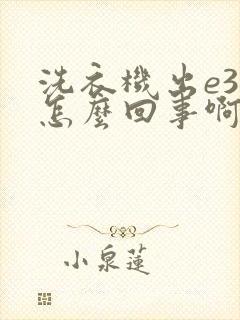 洗衣機出e3
怎麼回事啊
小泉蓮